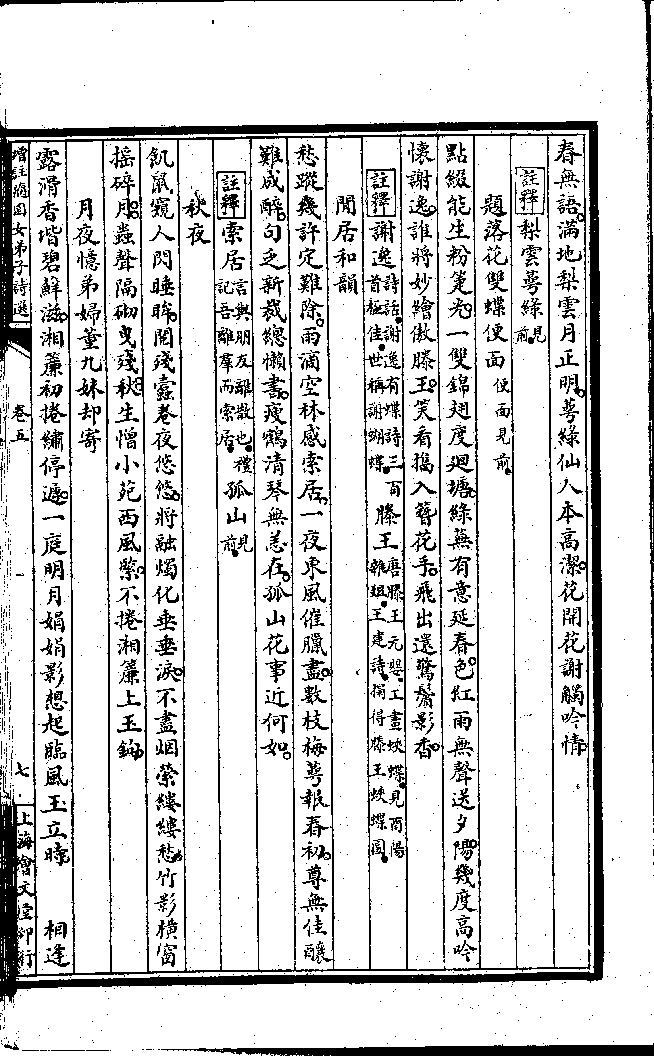 春無語。滿地梨雲月正明。萼綠仙人本高潔。花開花謝觸吟情
註釋 梨雲萼綠見前。
題落花雙蝶便面便面見前。
點綴能生粉筆光。一雙錦翅度迴塘。綠蕪有意延春色。紅雨無聲送夕陽。幾度高吟
懷謝逸。誰將妙繪傲滕王。笑看搗入簪花手。飛出還驚鬢影香。
註釋 謝逸詩話。謝逸有蝶詩三百首極佳。世稱謝蝴蝶。滕王唐滕王元嬰。工畫蛺蝶。見酉陽雜俎。王建詩。搨得滕王蛺蝶圖。
閒居和韻
愁蹤幾許定難除。雨滴空林感索居。一夜東風催臘盡。數枝梅萼報春初。尊無佳釀
難成醉。句乏新裁總懶書。瘦鶴清琴無恙在。孤山花事近何如。
註釋 索居言與朋友離散也。禮記吾離羣而索居。孤山見前。
秋夜
飢鼠窺人閃睡眸。閒殘蠹卷夜悠悠。將融燭化垂垂淚。不盡烟縈縷縷愁。竹影橫窗
搖碎月。蟲聲隔砌曳殘秋。生憎小苑西風緊。不捲湘簾上玉鉤。
月夜憶弟婦董九妹却寄
露滑香堦碧蘚滋。湘簾初捲繡停遲。一庭明月娟娟影。想起臨風玉立時。 相逢
增註隨園女弟子詩選 卷五 七 上海會文堂印行